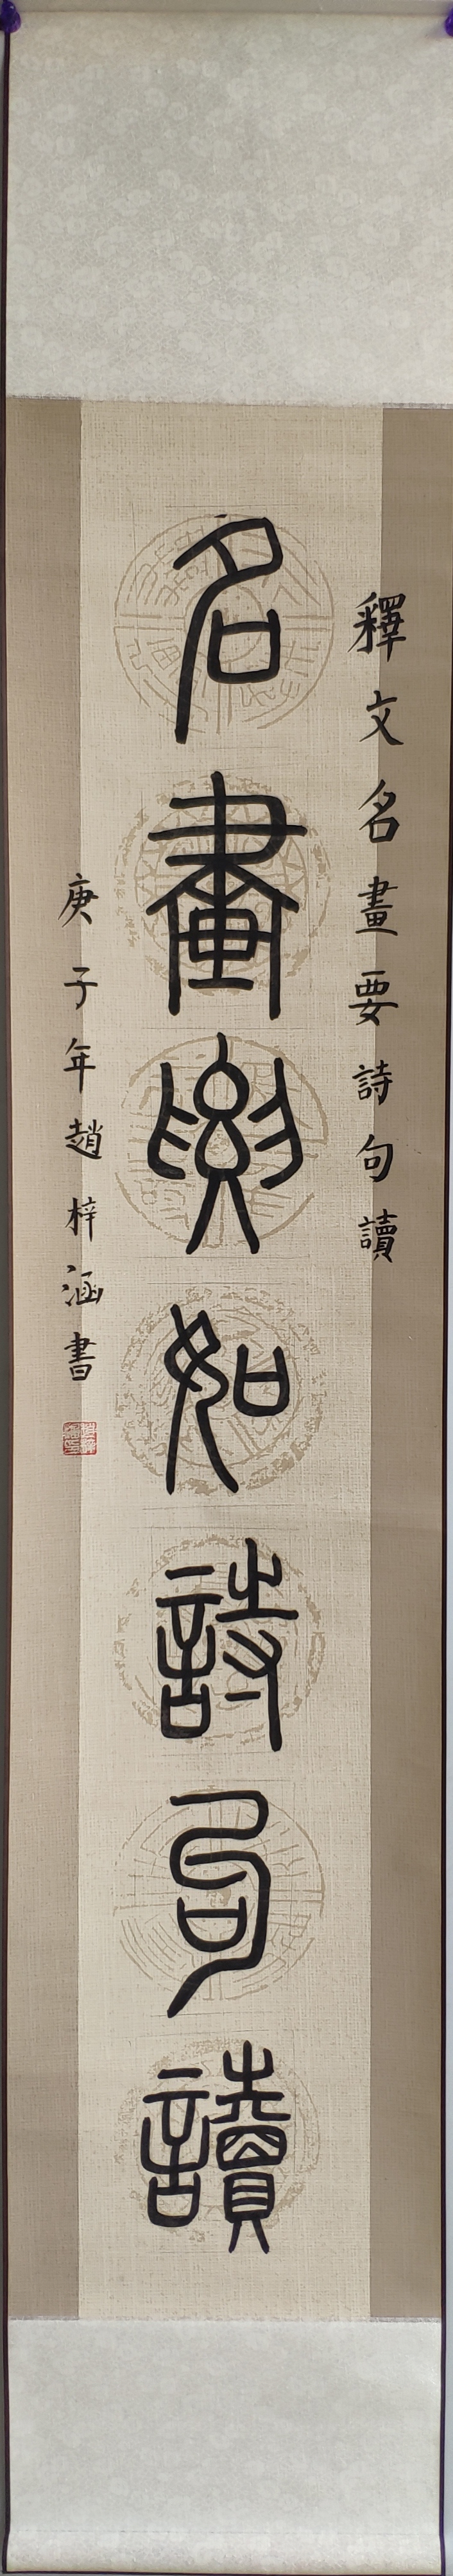 釋文名畫要詩句讀
名畫要如詩句讀
庚子年趙梓涵書